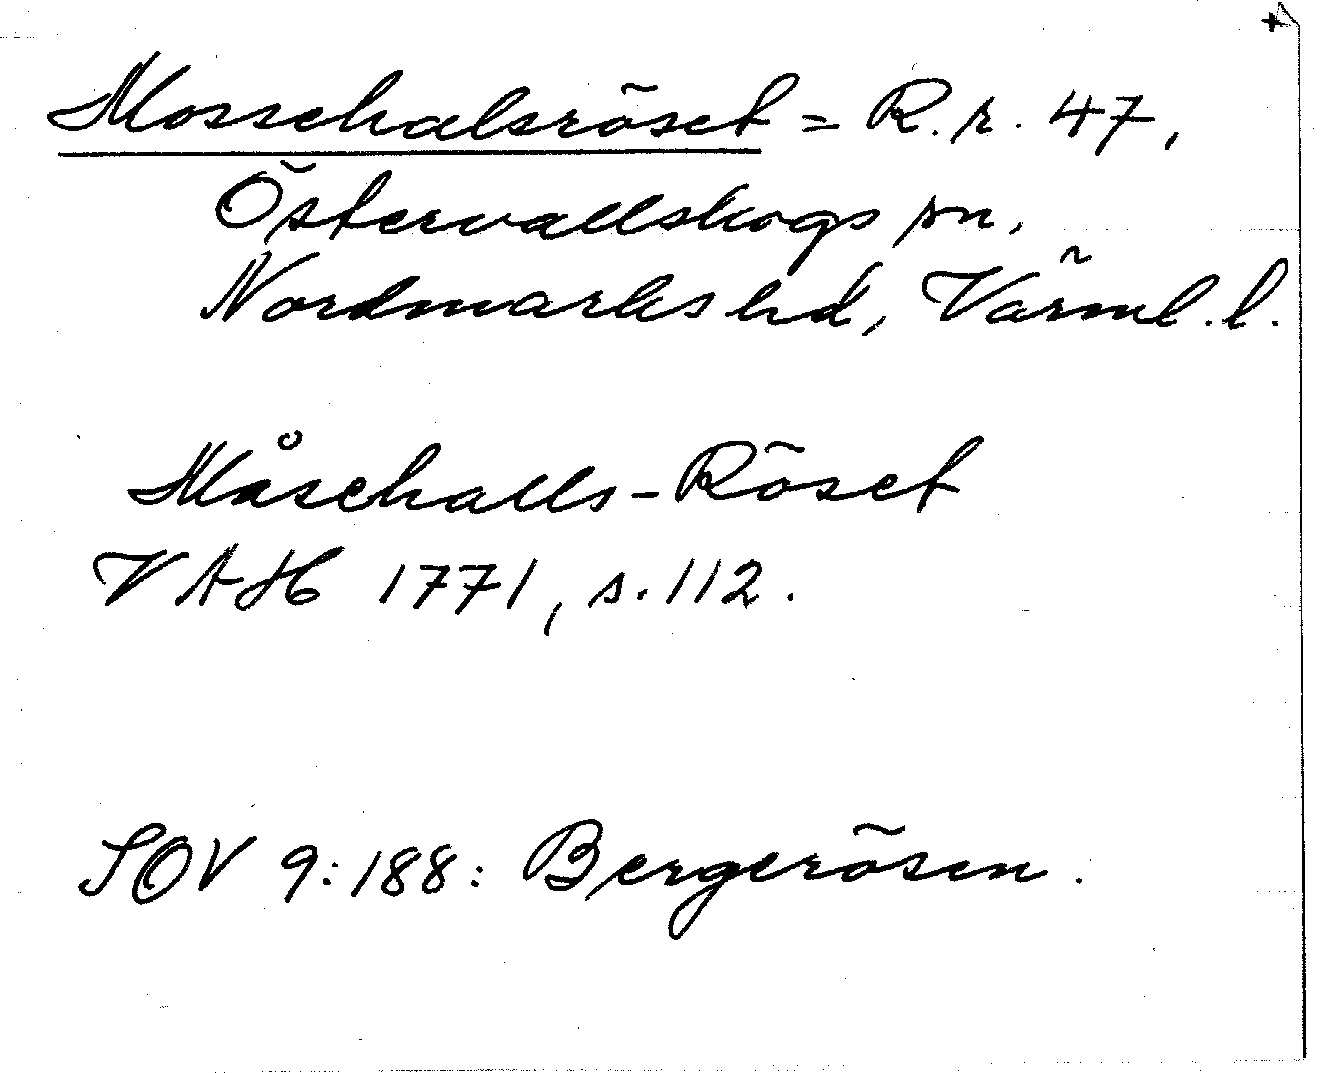 Mossehalsröset = R.r. 47,
Östervallskogs sn,
Nordmarks hd, Värml. l.
Måsehalls-Röset
VAH 1771, s. 112.
SOV 9:188: Bergerösen.